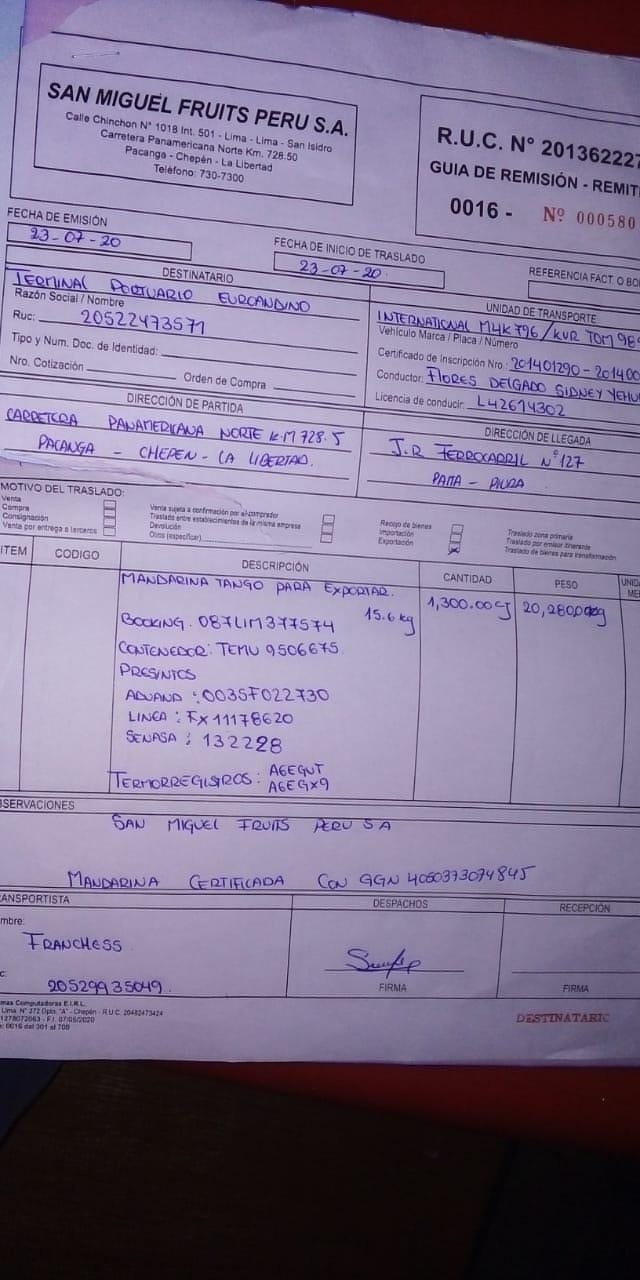 SAN MIGUEL FRUITS PERU S.A.
Calle Chinchon N° 1018 Int. 501 - Lima - Lima - San Isidro
Carretera Panamericana Norte Km. 728.50
Pacanga - Chepén - La Libertad
Teléfono: 730-7300
R.U.C. N° 201362227
GUIA DE REMISIÓN - REMIT
0016 - Nº 000580
FECHA DE EMISIÓN
23-07-20
FECHA DE INICIO DE TRASLADO
23-07-20.
REFERENCIA FACT. O BO
DESTINATARIO
TERMINAL PORTUARIO EUROANDINO
Razón Social / Nombre
Ruc: 20522473571
Tipo y Num. Doc. de Identidad:
Nro. Cotización
Orden de Compra
UNIDAD DE TRANSPORTE
INTERNATIONAL M4K 796 / KUR TOM 98
Vehículo Marca / Placa / Número
Certificado de Inscripción Nro.: 201401290 - 201400
Conductor: FLORES DELGADO SIDNEY YEHU
Licencia de conducir: L42614302
DIRECCIÓN DE PARTIDA
CARRETERA PANAMERICANA NORTE K.M 728.5
PACANGA - CHEPEN - LA LIBERTAD.
DIRECCIÓN DE LLEGADA
J.R FERROCARRIL N°127
PAITA - PIURA
MOTIVO DEL TRASLADO:
Venta
Compra
Consignación
Venta por entrega a terceros
Venta sujeta a confirmación por el comprador
Traslado entre establecimientos de la misma empresa
Devolución
Otros (especificar)
Recojo de bienes
Importación
Exportación
Traslado zona primaria
Traslado por emisor itinerante
Traslado de bienes para transformación
ITEM CODIGO DESCRIPCIÓN CANTIDAD PESO UNID
ME
MANDARINA TANGO PARA EXPORTAR.
15.6 kg 1,300.00 20,280.00kg
BOOKING. 087LIM377574
CONTENEDOR: TEMU 9506675.
PRESINTOS
ADUANA : 0035F022730
LINEA : FX11178620
SENASA : 132228
TERMORREGISTROS: A6EGUT
A6EGX9
OBSERVACIONES
SAN MIGUEL FRUITS PERU S A
MANDARINA CERTIFICADA CON GGN 4050373074845
TRANSPORTISTA
DESPACHOS
RECEPCIÓN
mbre:
FRANCHESS
20529935049.
FIRMA
FIRMA
mas Computadoras E.I.R.L.
Lima N° 272 Dpto. "A" - Chepén - R.U.C. 20482473424
1278072063 - F.I. 07/05/2020
0016 del 301 al 700
DESTINATARIO